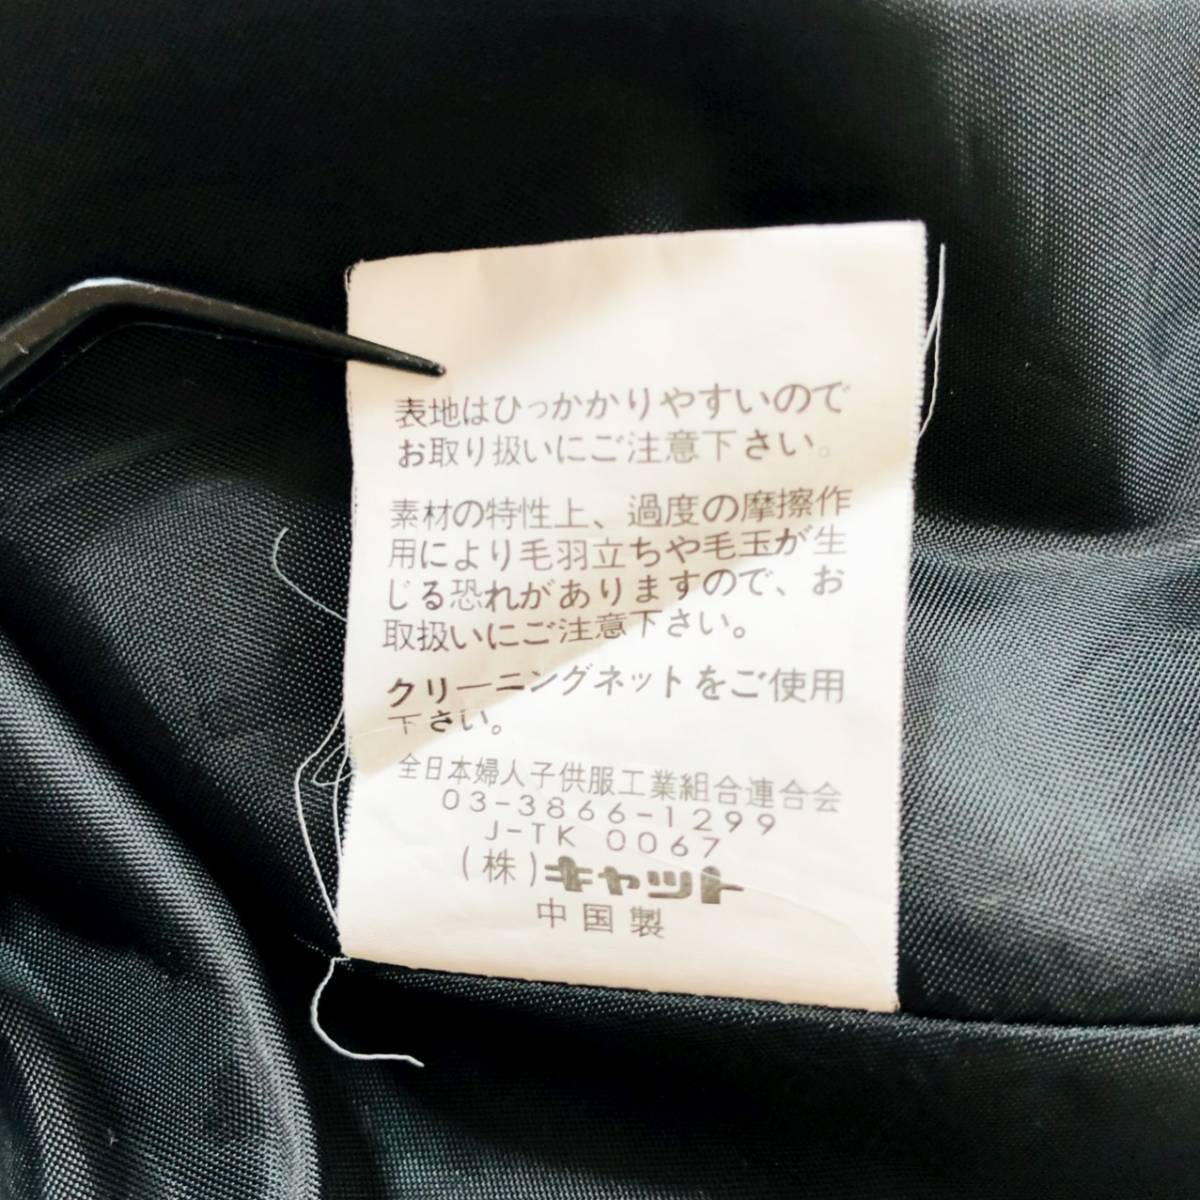 表地はひっかかりやすいので
お取り扱いにご注意下さい。
素材の特性上、過度の摩擦作
用により毛羽立ちや毛玉が生
じる恐れがありますので、お
取扱いにご注意下さい。
クリーニングネットをご使用
下さい。
全日本婦人子供服工業組合連合会
03-3866-1299
J-TK 0067
(株)キャット
中国製